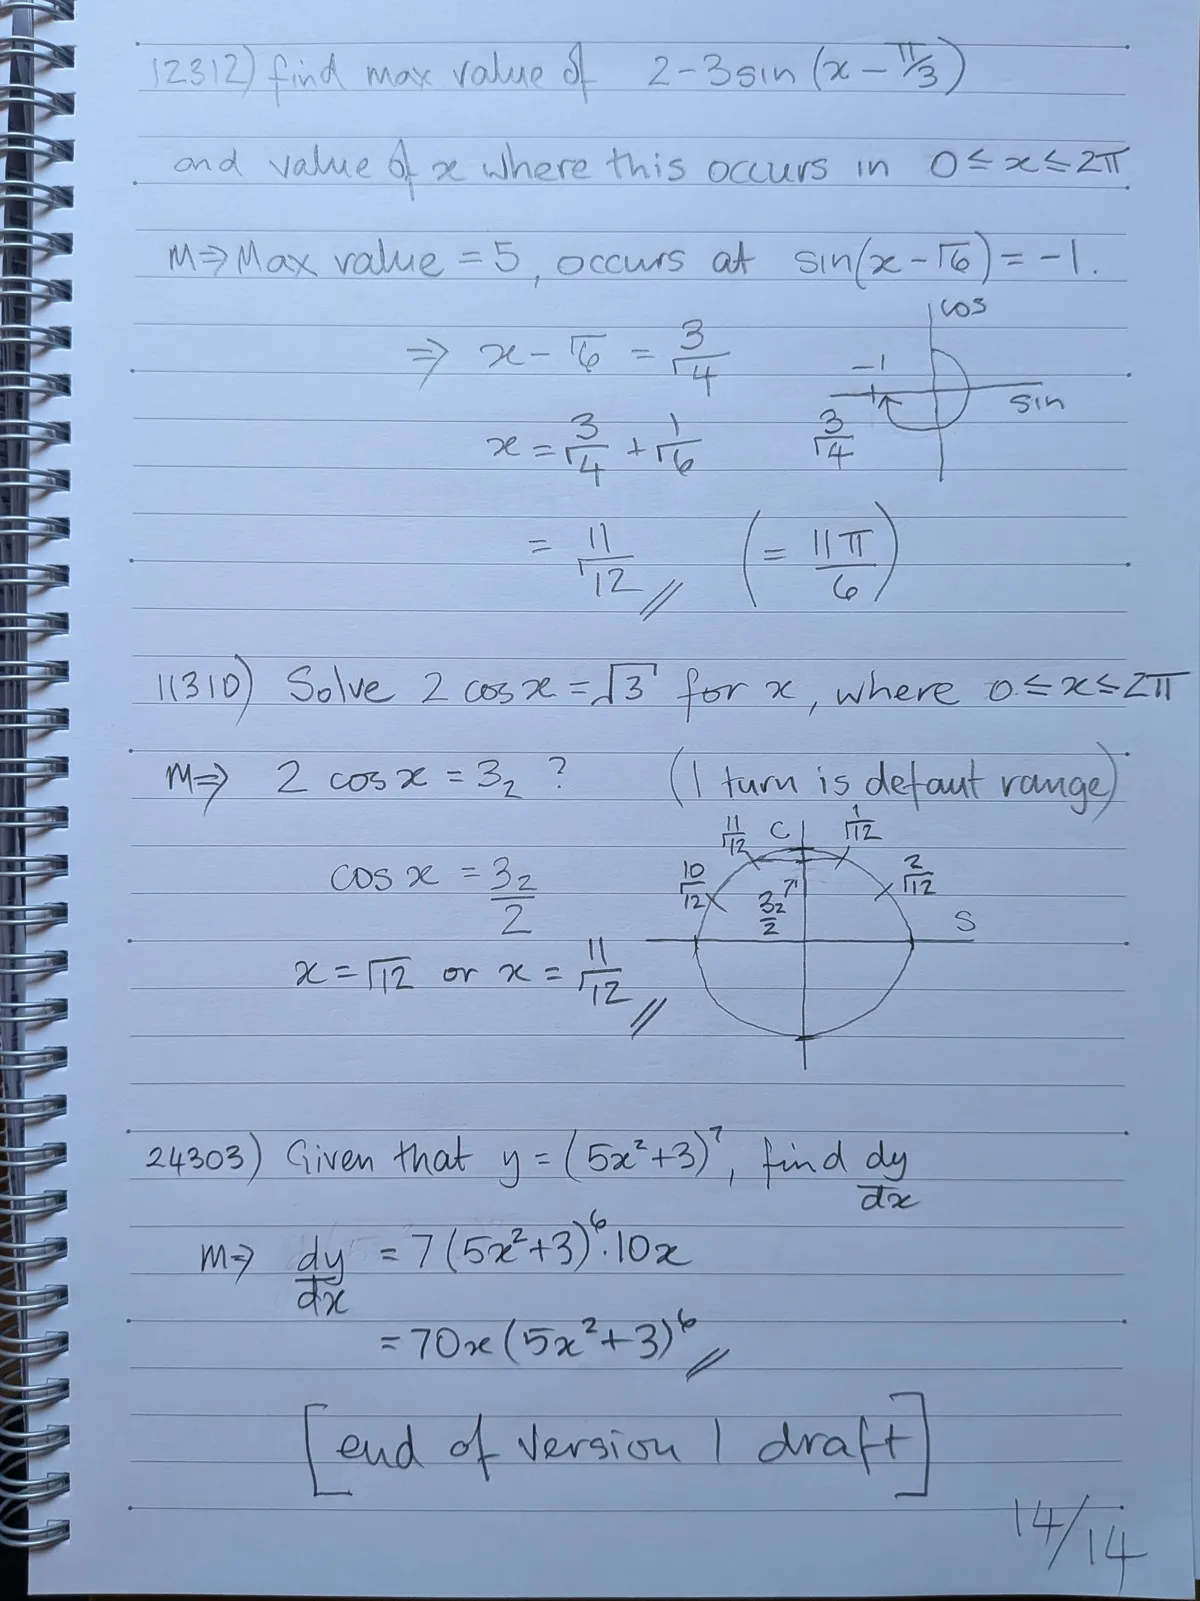 12312) find max value of 2-3sin(x-π/3)
and value of x where this occurs in 0≤x≤2π
M⇒ Max value = 5, occurs at sin(x-Γ6)=-1.
cos
⇒ x - Γ6 = 3/Γ4
-1
sin
x = 3/Γ4 + 1/Γ6
3/Γ4
= 11/Γ12 // (= 11π/6)
11310) Solve 2cosx=√3 for x, where 0≤x≤2π
M⇒ 2 cosx = 3₂ ? (1 turn is defaut range)
11/Γ12 C 1/Γ12
cos x = 3₂/2
10/Γ12 3₂/2 2/Γ12
S
x = Γ12 or x = 11/Γ12 //
24303) Given that y = (5x²+3)⁷, find dy/dx
M⇒ dy/dx = 7(5x²+3)⁶.10x
= 70x(5x²+3)⁶ //
[end of version 1 draft]
14/14